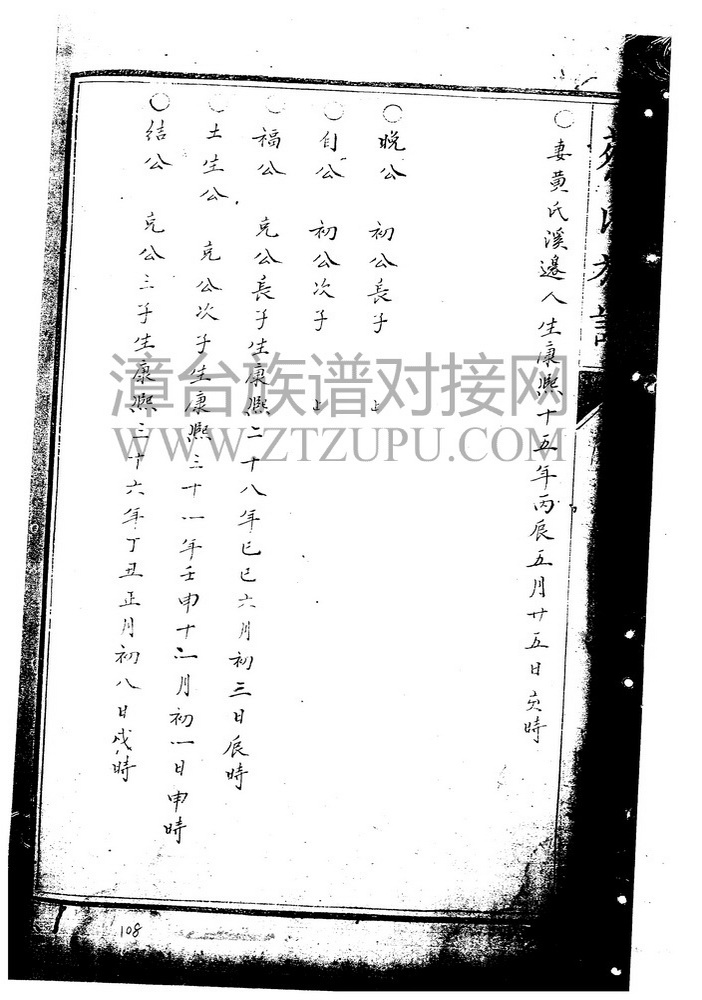 ○妻黄氏溪邊人生康熙十五年丙辰五月廿五日亥時
○晚公 初公長子 止
○自公 初公次子 止
○福公 克公長子生康熙二十八年己巳六月初三日辰時
○土生公 克公次子生康熙三十一年壬申十二月初一日申時
○結公 克公三子生康熙三十六年丁丑正月初八日戌時
漳台族谱对接网
WWW.ZTZUPU.COM
108